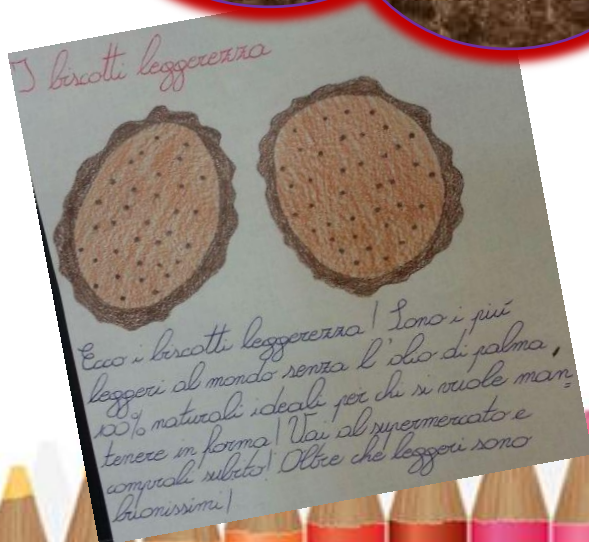 I biscotti leggerezza
Ecco i biscotti leggerezza! Sono i piú
leggeri al mondo senza l'olio di palma,
100% naturali ideali per chi si vuole man=
tenere in forma! Vai al supermercato e
comprali subito! Oltre che leggeri sono
buonissimi!